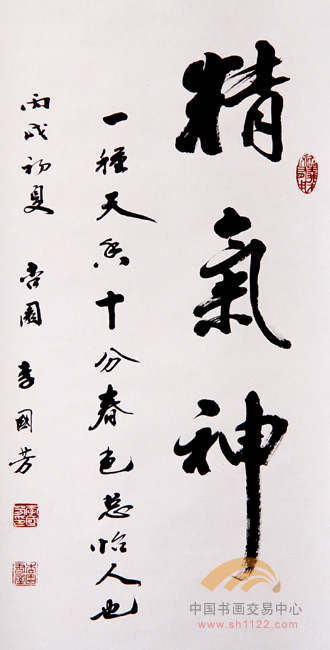 精氣神
一種天香十分春色總怡人也
丙戌初夏 杏園 李國芳
中国书画交易中心
www.sh1122.com